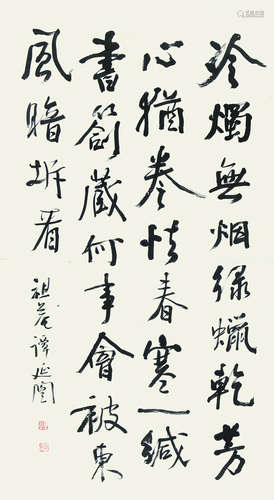 冷燭無烟綠蠟乾芳
心猶卷怯春寒一緘
書劄藏何事會被東
風暗拆看
祖菴譚延闓